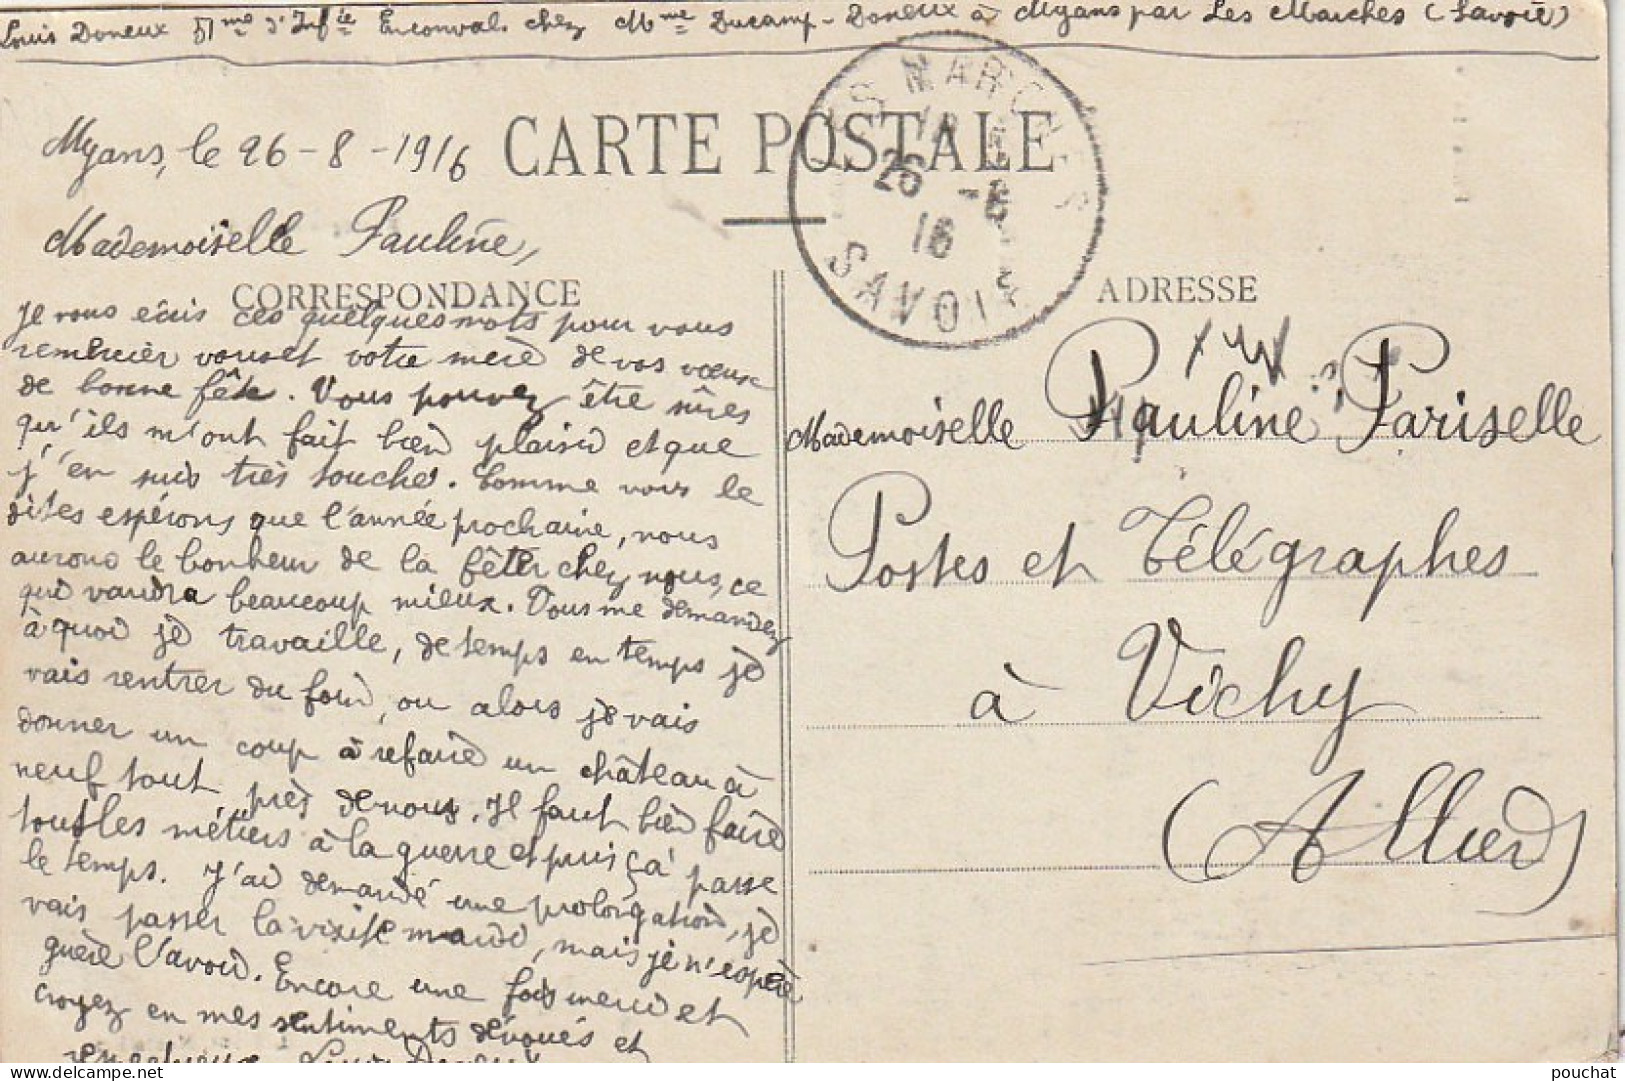 Louis Doneux 51me d'Infie En conval. chez Mme Ducamp-Doneux à Myans par Les Marches (Savoie)
CARTE POSTALE
Myans, le 26-8-1916
Mademoiselle Pauline,
CORRESPONDANCE
Je vous écris ces quelques mots pour vous
remercier vous et votre mère de vos vœux
de bonne fête. Vous pouvez être sûres
qu'ils m'ont fait bien plaisir et que
j'en suis très touché. Comme vous le
dites espérons que l'année prochaine, nous
aurons le bonheur de la fêter chez nous, ce
qui vaudra beaucoup mieux. Vous me demandez
à quoi je travaille, de temps en temps je
vais rentrer du foin, ou alors je vais
donner un coup à refaire un château à
neuf tout près de nous. Il faut bien faire
tout les métiers à la guerre et puis ça passe
le temps. J'ai demandé une prolongation, je
vais passer la visite mardi, mais je n'espère
guère l'avoir. Encore une fois merci et
croyez en mes sentiments dévoués et
respectueux Louis Doneux
LES MARCHES
26 -8
16
SAVOIE
ADRESSE
Mademoiselle Pauline Pariselle
Postes et Télégraphes
à Vichy
(Allier)
pouchat